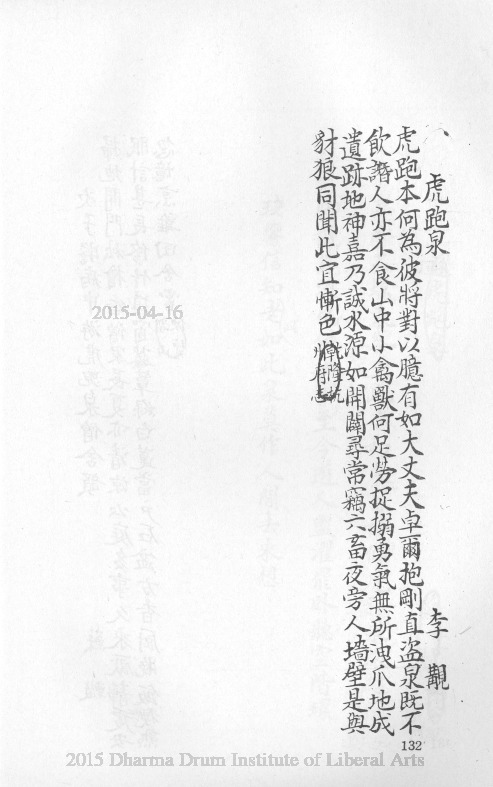 虎跑泉 李覯
虎跑本何為彼將對以臆有如大丈夫卓爾抱剛直盜泉既不
飲譖人亦不食山中小禽獸何足勞捉搦勇氣無所洩爪地成
遺跡地神嘉乃誠水源如開闢尋常竊六畜夜旁人墻壁是與
豺狼同聞此宜慚色
州府志
132
2015-04-16
2015 Dharma Drum Institute of Liberal Arts